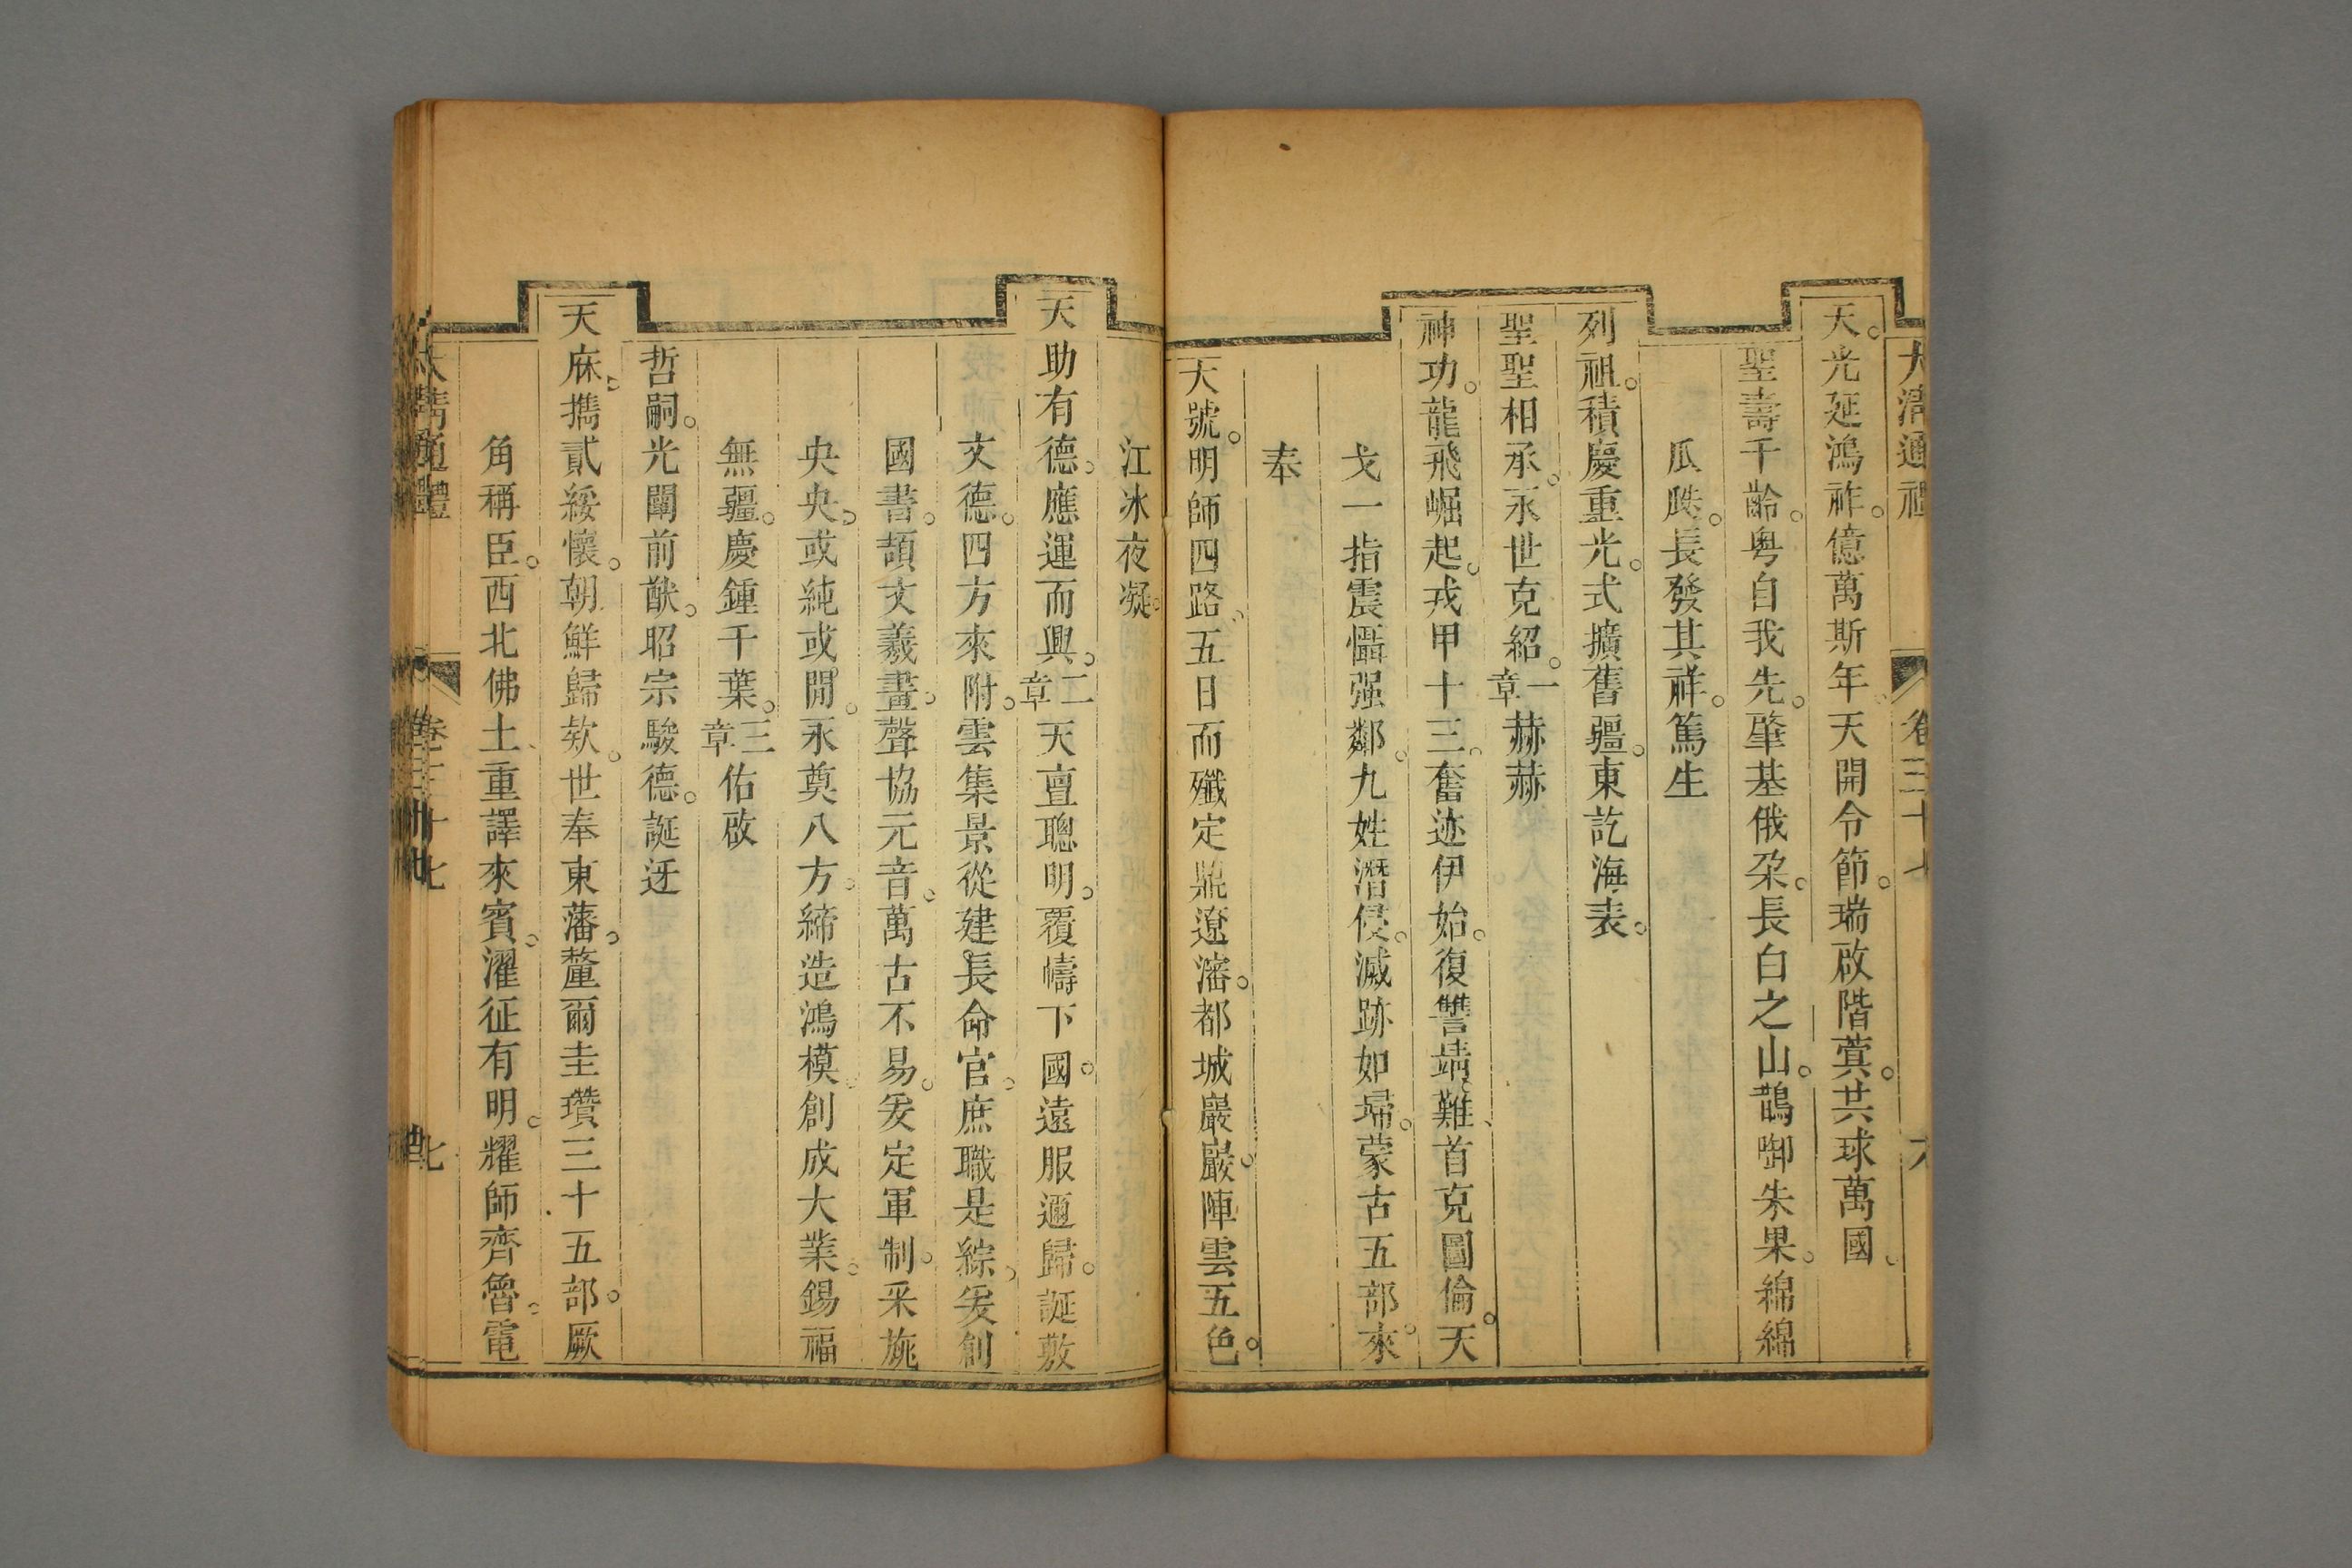 大清通禮 卷三十七 六
天。光延鴻祚。億萬斯年。天開令節。瑞啟階蓂。共球萬國。
聖壽千齡。粵自我先。肇基俄朶。長白之山。鵲啣朱果。綿綿
瓜瓞。長發其祥。篤生
列祖。積慶重光。式擴舊疆。東訖海表。
聖聖相承。永世克紹。一章赫赫
神功。龍飛崛起。戎甲十三。奮迹伊始。復讐靖難。首克圖倫。天
戈一指震懾强鄰。九姓潛侵。滅跡如埽。蒙古五部。來
奉
大號。明師四路。五日而殲定鼎遼瀋。都城巖巖。陣雲五色。
江冰夜凝。
天助有德。應運而興。二章天亶聰明。覆幬下國。遠服邇歸。誕敷
文德。四方來附。雲集景從建長命官。庶職是綜。爰創
國書。頡文羲畫。聲協元音。萬古不易。爰定軍制。采旄
央央。或純或閒。永奠八方。締造鴻模。創成大業。錫福
無疆。慶鍾千葉。三章佑啟
哲嗣。光闡前猷。昭宗駿德。誕迓
天庥。攜貳綏懷。朝鮮歸欵。世奉東藩。釐爾圭瓚三十五部。厥
角稱臣。西北佛土。重譯來賓。濯征有明。耀師齊魯。電
大清通禮 卷三十七 七